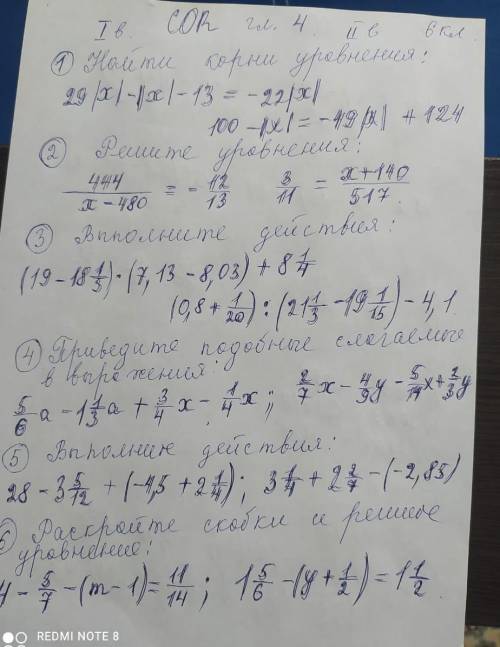 I в. СОR гл. 4. II в 6 кл.
① Найти корни уравнения:
29|x| - ||x| - 13 = -22|x|
100 - ||x| = -49|x| + 124
② Решите уравнения:
444/(x-480) = -12/13   3/11 = (x+140)/517
③ Выполните действия:
(19 - 18 1/3) · (7,13 - 8,03) + 8 1/4
(0,8 + 1/20) : (21 1/3 - 19 1/15) - 4,1
④ Приведите подобные слогаемые
в выражения:
5/6 a - 1 1/3 a + 3/4 x - 1/4 x ;   2/7 x - 4/9 y - 5/14 x + 2/3 y
⑤ Выполник действия:
28 - 3 5/12 + (-4,5 + 2 1/4) ;   3 1/4 + 2 2/7 - (-2,85)
6 Раскройте скобки и решите
уравнение:
4 - 5/7 - (m - 1) = 11/14 ;   1 5/6 - (y + 1/2) = 1 1/2.
REDMI NOTE 8